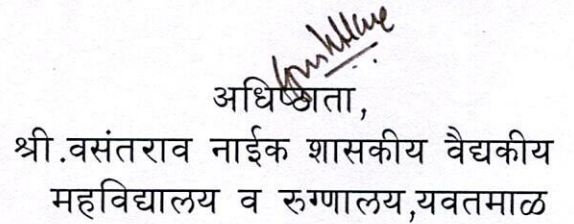 अधिष्ठाता,
श्री.वसंतराव नाईक शासकीय वैद्यकीय
महविद्यालय व रुग्णालय,यवतमाळ